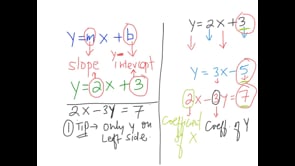 y=mx+b
slope y-intercept
y=2x+3
2x-3y=7
① TIP → only y on
left side
y=2x+3
y=3x-5
2x-3y=7
Coefficient of X
Coeff of Y